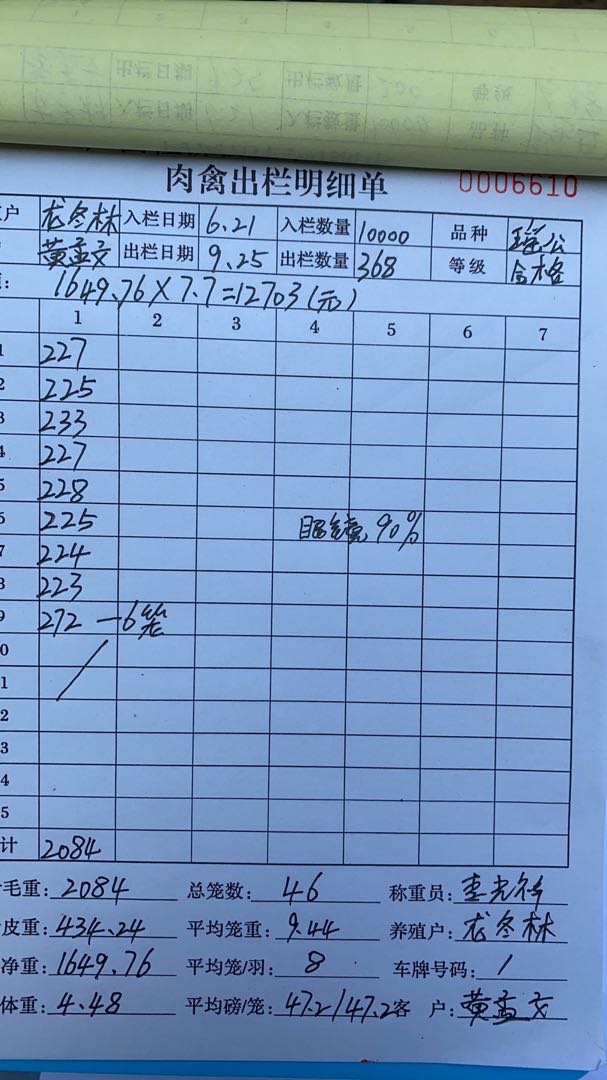 肉禽出栏明细单 0006610
户 龙冬林 入栏日期 6.21 入栏数量 10000 品种 瑶公
黄孟交 出栏日期 9.25 出栏数量 368 等级 合格
1649.76×7.7=12703(元)
1 2 3 4 5 6 7
1 227
2 225
3 233
4 227
5 228
6 225 90%
7 224
8 223
9 272 —6笼
0
1
2
3
4
5
计 2084
毛重: 2084 总笼数: 46 称重员:
皮重: 434.24 平均笼重: 9.44 养殖户: 龙冬林
净重: 1649.76 平均笼/羽: 8 车牌号码: /
体重: 4.48 平均磅/笼: 47.2/47.2 客户: 黄孟交